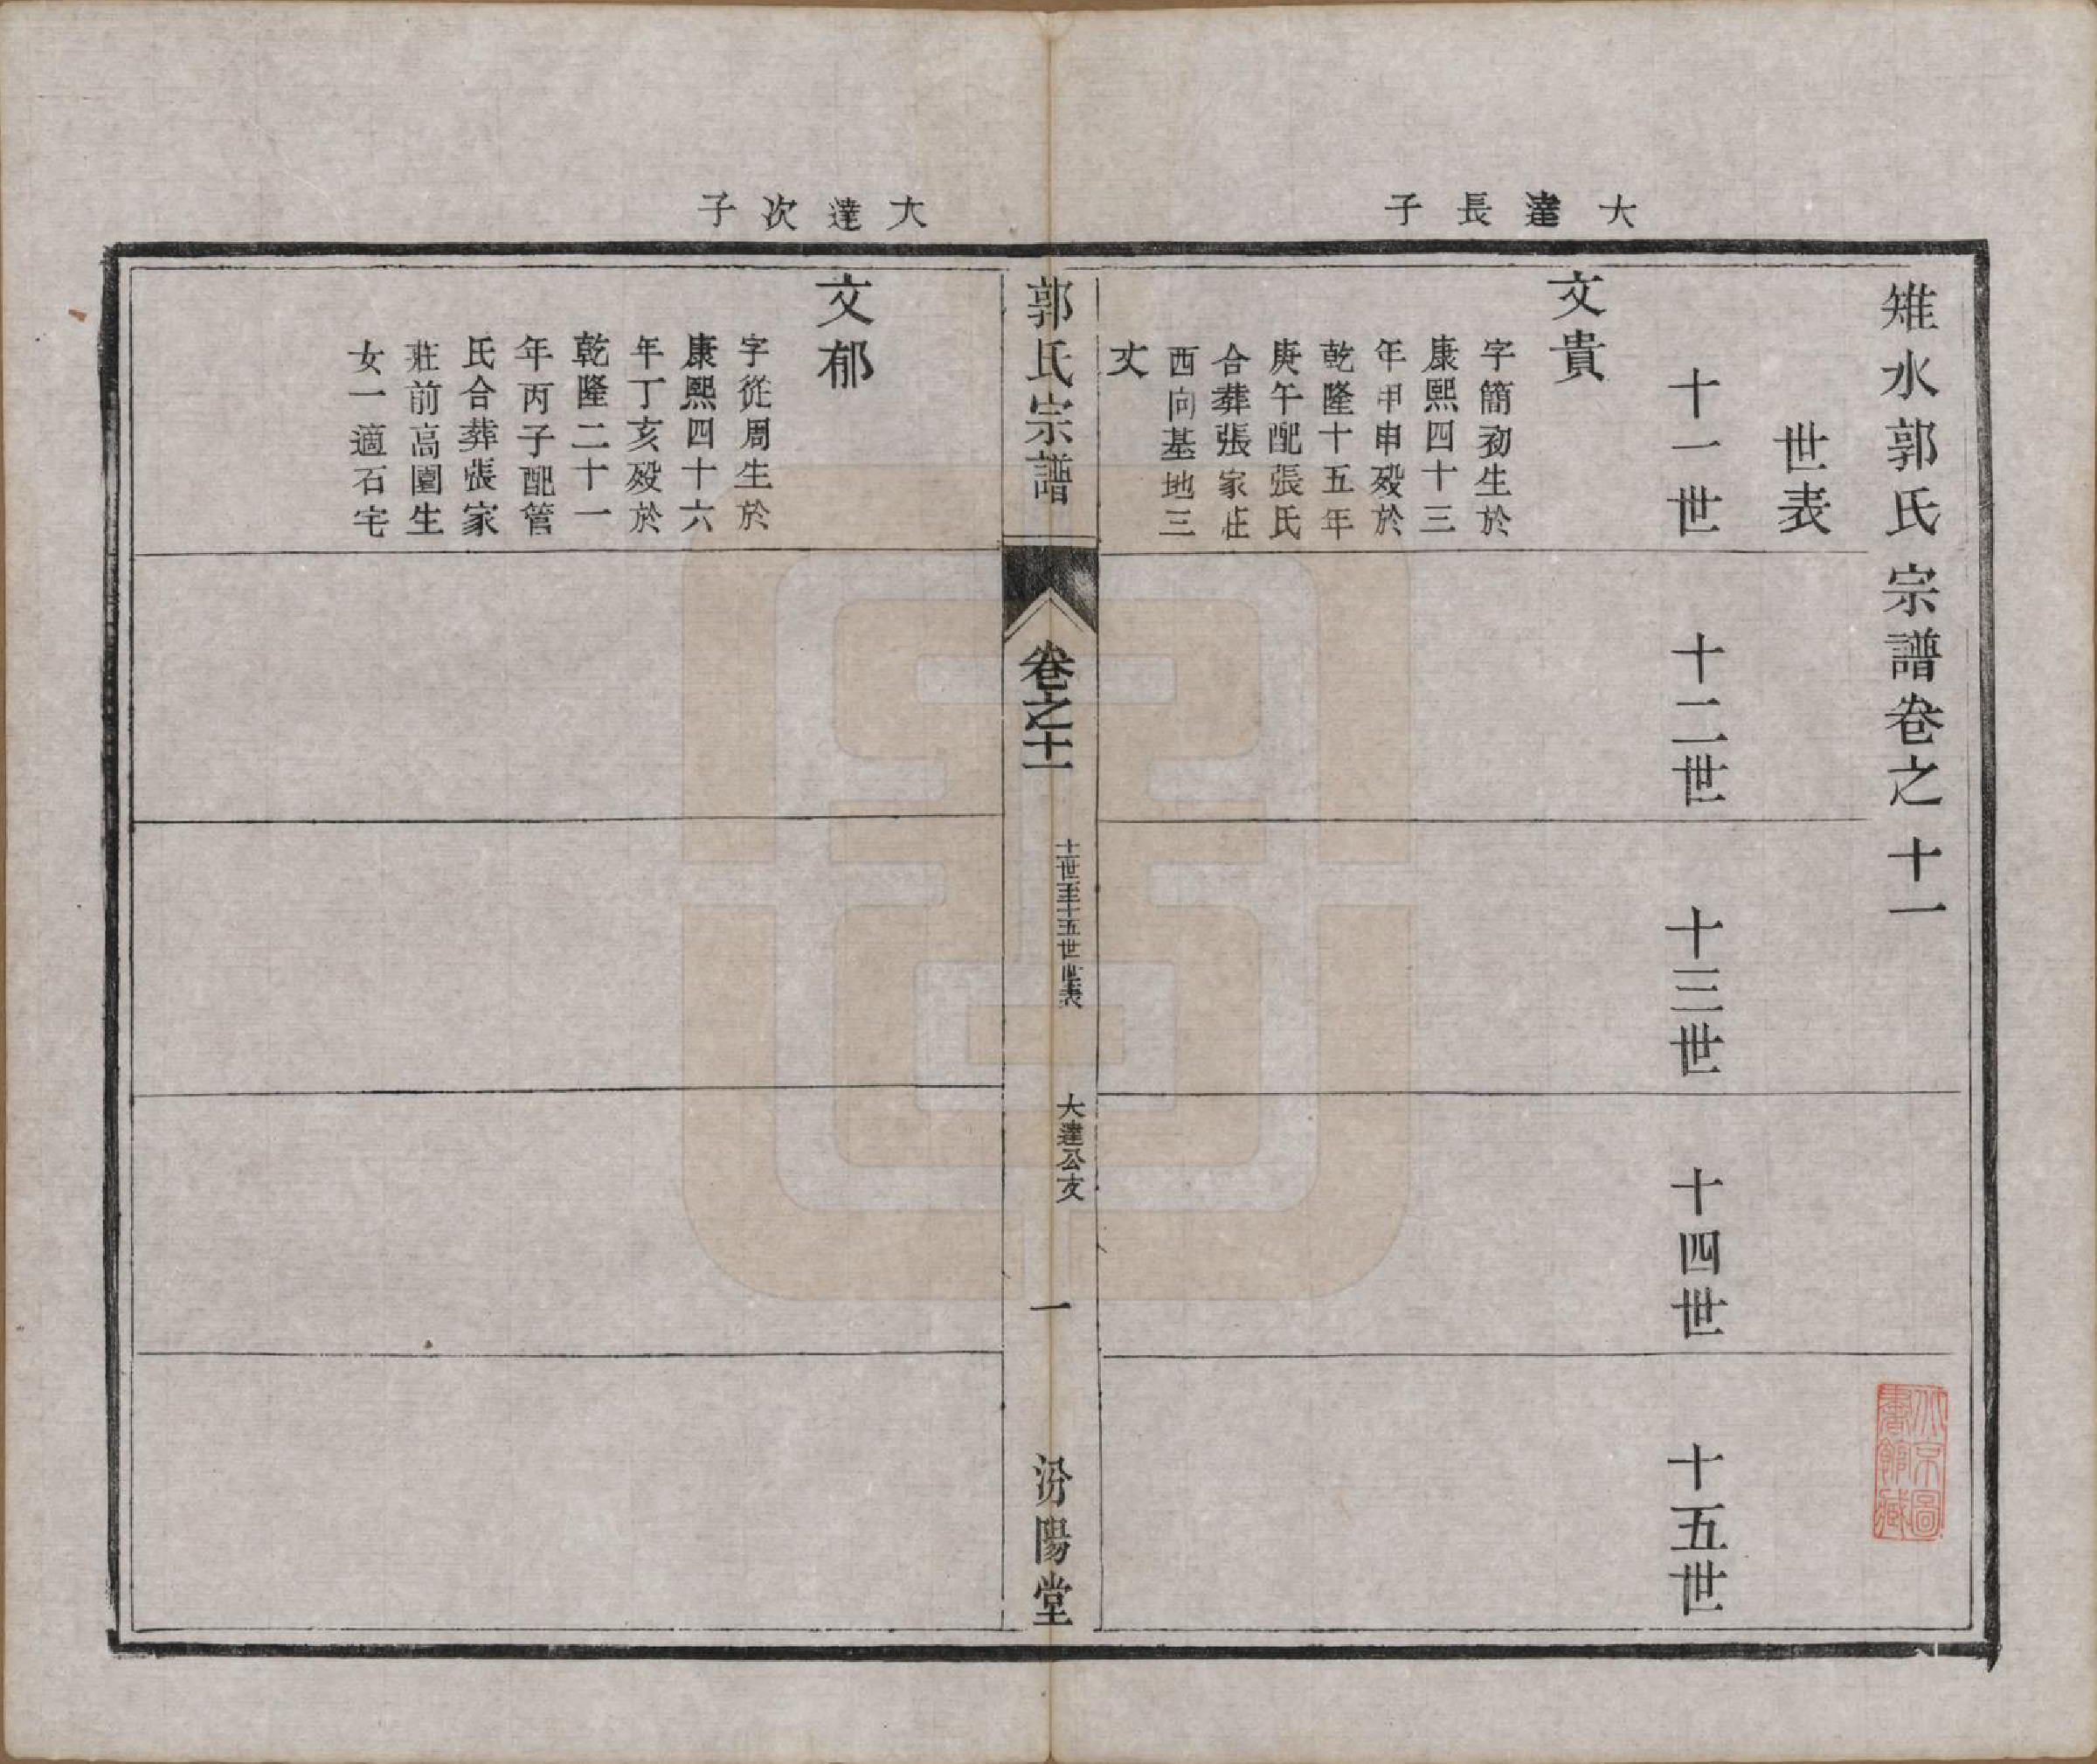 雉水郭氏宗譜卷之十一
世表
十一世
十二世
十三世
十四世
十五世
大達長子
文貴
字簡初生於
康熙四十三
年甲申殁於
乾隆十五年
庚午配張氏
合葬張家莊
西向基地三
丈
郭氏宗譜
卷之十一
十一世至十五世世表
大達公支
一
汾陽堂
大達次子
文郁
字從周生於
康熙四十六
年丁亥殁於
乾隆二十一
年丙子配管
氏合葬張家
莊前高園生
女一適石宅
北京圖
書館藏